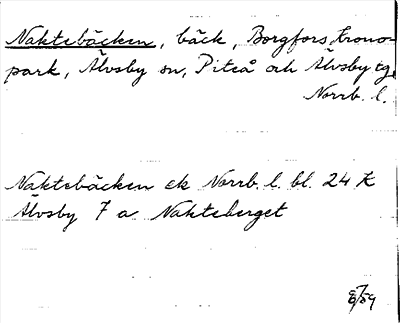 Naktebäcken, bäck, Borgfors krono-
park, Älvsby sn, Piteå och Älvsby tg,
Norrb. l.
Naktebäcken ek Norrb. l. bl. 24 K
Älvsby 7 a Nakteberget